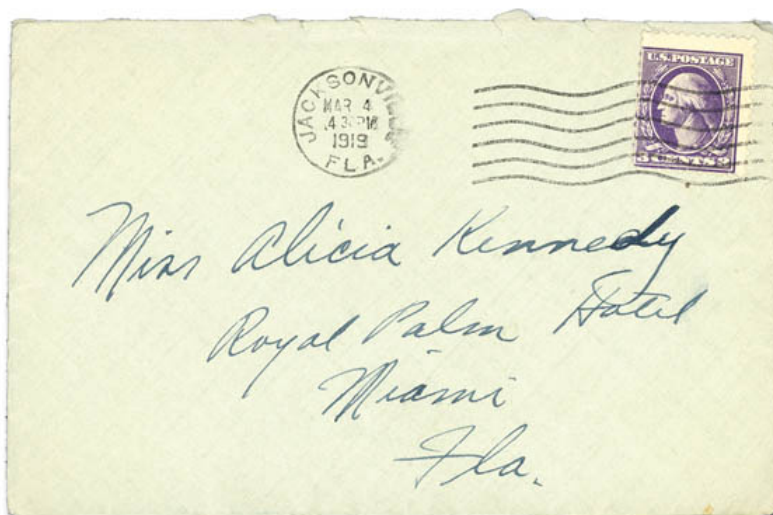 JACKSONVILLE
MAR 4
4 30 PM
1919
FLA.
U.S. POSTAGE
3 CENTS 3
Miss Alicia Kennedy
Royal Palm Hotel
Miami
Fla.